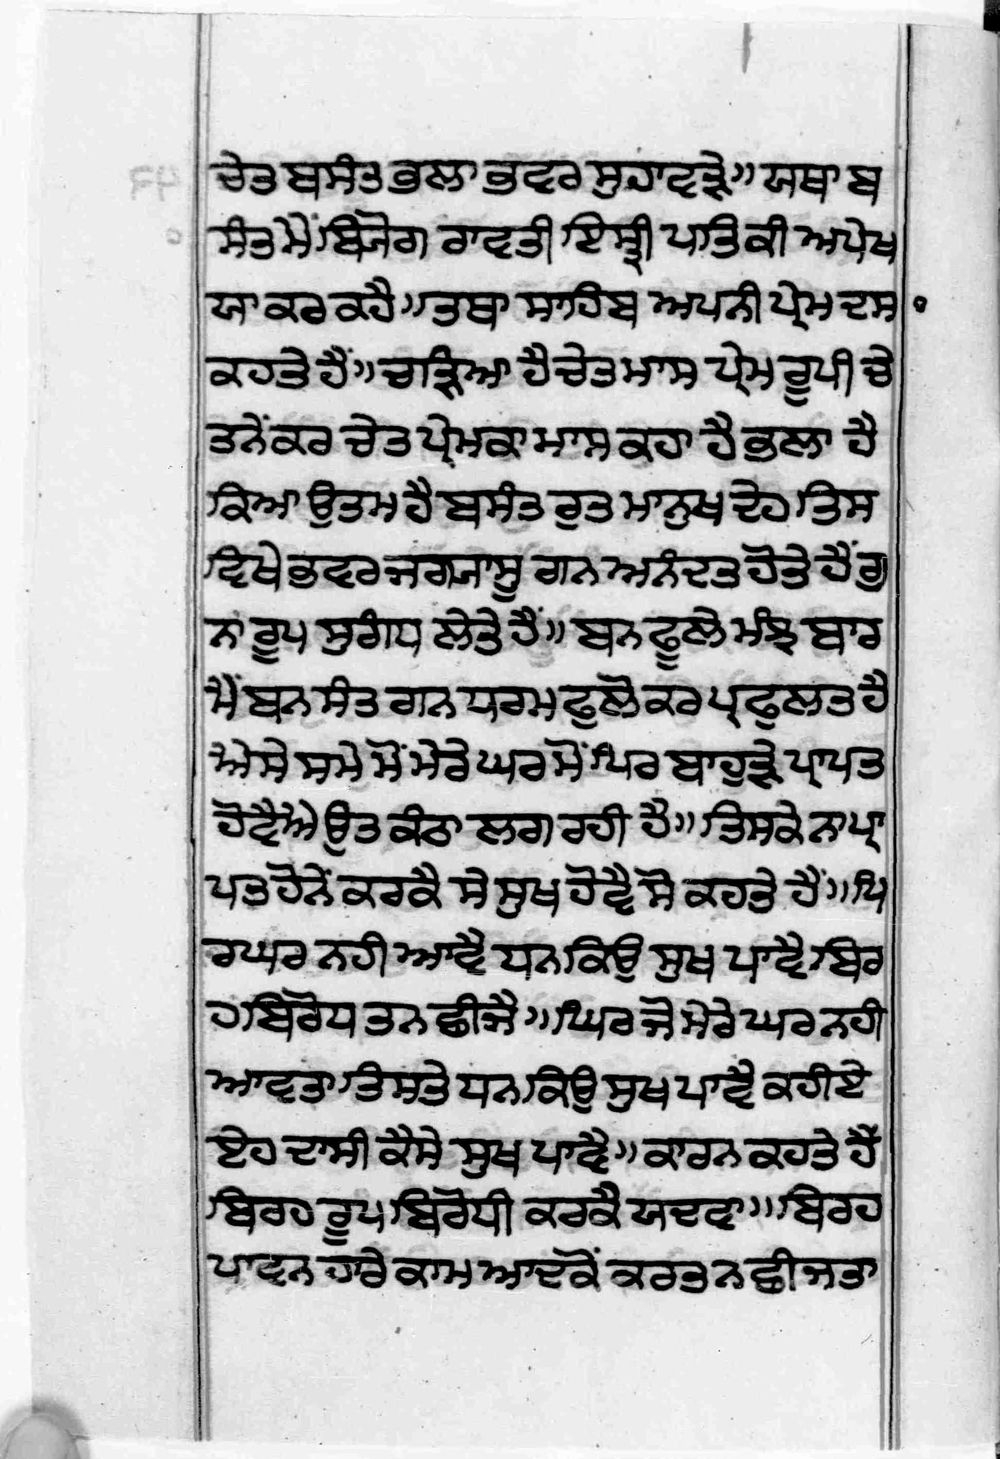 ਚੇਤ ਬਸੰਤ ਭਲਾ ਭਵਰ ਸੁਹਾਵੜੇ॥ ਯਥਾ ਬ
ਸੰਤ ਮੈਂ ਬਿਜੋਗ ਰਾਵਤੀ ਇਸਤ੍ਰੀ ਪਤਿ ਕੀ ਅਪੇਖ
ਯਾ ਕਰ ਕਹੈ॥ ਤਥਾ ਸਾਹਿਬ ਅਪਨੀ ਪ੍ਰੇਮ ਦਸ
ਕਹਤੇ ਹੈਂ॥ ਚੜ੍ਹਿਆ ਹੈ ਚੇਤ ਮਾਸ ਪ੍ਰੇਮ ਰੂਪੀ ਚੇ
ਤਨੇਂ ਕਰ ਚੇਤ ਪ੍ਰੇਮ ਕਾ ਮਾਸ ਕਹਾ ਹੈ ਭਲਾ ਹੈ
ਕਿਆ ਉਤਮ ਹੈ ਬਸੰਤ ਰੁਤ ਮਾਨੁਖ ਦੇਹ ਤਿਸ
ਵਿਖੇ ਭਵਰ ਜਗਯਾਸੂ ਗਨ ਅਨੰਦਤ ਹੋਤੇ ਹੈਂ ਗੁ
ਨ ਰੂਪ ਸੁਗੰਧ ਲੇਤੇ ਹੈਂ॥ ਬਨ ਫੂਲੇ ਮੰਝ ਬਾਰ
ਮੈਂ ਬਨ ਸੰਤ ਗਨ ਧਰਮ ਫੁਲੋ ਕਰ ਪ੍ਰਫੁਲਤ ਹੈ
ਐਸੇ ਸਮੇ ਮੋਂ ਮੇਰੇ ਘਰ ਮੋਂ ਪਿਰ ਬਾਹੁੜੇ ਪ੍ਰਾਪਤ
ਹੋਵੈ ਐ ਉਤ ਕੰਠਾ ਲਗ ਰਹੀ ਹੈ॥ ਤਿਸਕੇ ਨਾ ਪ੍ਰਾ
ਪਤ ਹੋਨੇਂ ਕਰਕੈ ਸੇ ਸੁਖ ਹੋਵੈ ਸੋ ਕਹਤੇ ਹੈਂ॥ ਪਿ
ਰ ਘਰ ਨਹੀ ਆਵੈ ਧਨ ਕਿਉ ਸੁਖ ਪਾਵੈ ਬਿਰ
ਹ ਬਿਰੋਧ ਤਨ ਛੀਜੈ॥ ਪਿਰ ਜੋ ਮੇਰੇ ਘਰ ਨਹੀ
ਆਵਤਾ ਤਿਸਤੇ ਧਨ ਕਿਉ ਸੁਖ ਪਾਵੈ ਕਹੀਏ
ਏਹ ਦਾਸੀ ਕੈਸੇ ਸੁਖ ਪਾਵੈ॥ ਕਾਰਨ ਕਹਤੇ ਹੈਂ
ਬਿਰਹ ਰੂਪ ਬਿਰੋਧੀ ਕਰਕੈ ਯਦਵਾ॥ ਬਿਰਹ
ਪਾਵਨ ਹਾਰੇ ਕਾਮ ਆਦਕੋਂ ਕਰ ਤਨ ਛੀਜਤਾ